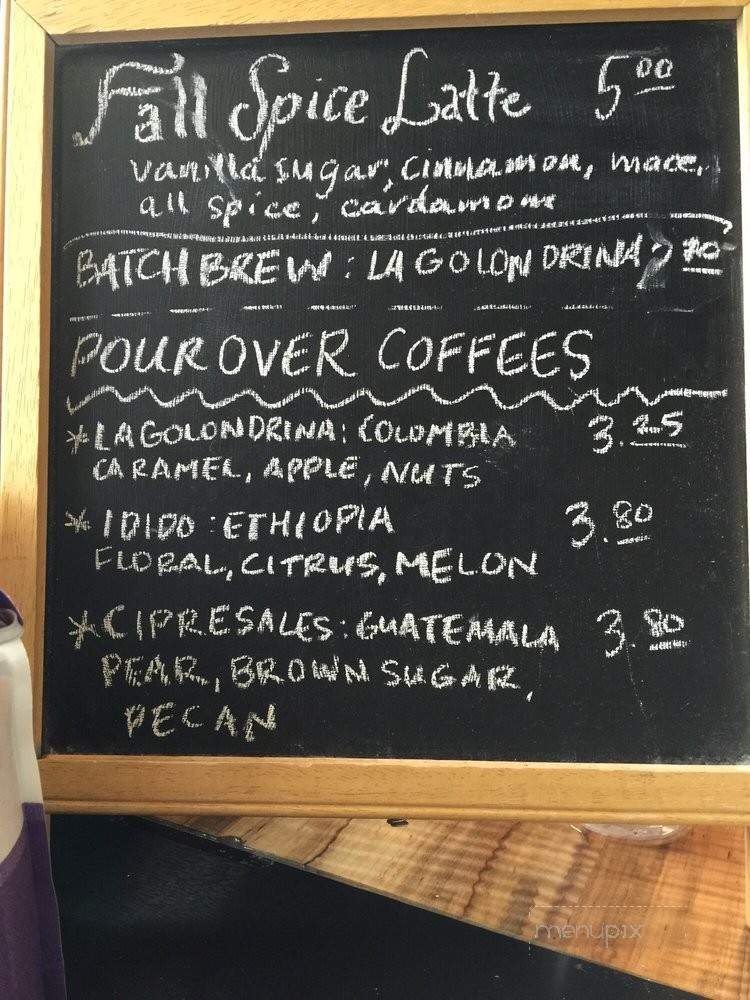 Fall Spice Latte 5.00
vanilla sugar, cinnamon, mace,
all spice, cardamom
BATCH BREW: LA GOLONDRINA
POUR OVER COFFEES
* LA GOLONDRINA: COLOMBIA 3.25
CARAMEL, APPLE, NUTS
* IDIDO: ETHIOPIA 3.80
FLORAL, CITRUS, MELON
* CIPRESALES: GUATEMALA 3.80
PEAR, BROWN SUGAR,
PECAN
menupix